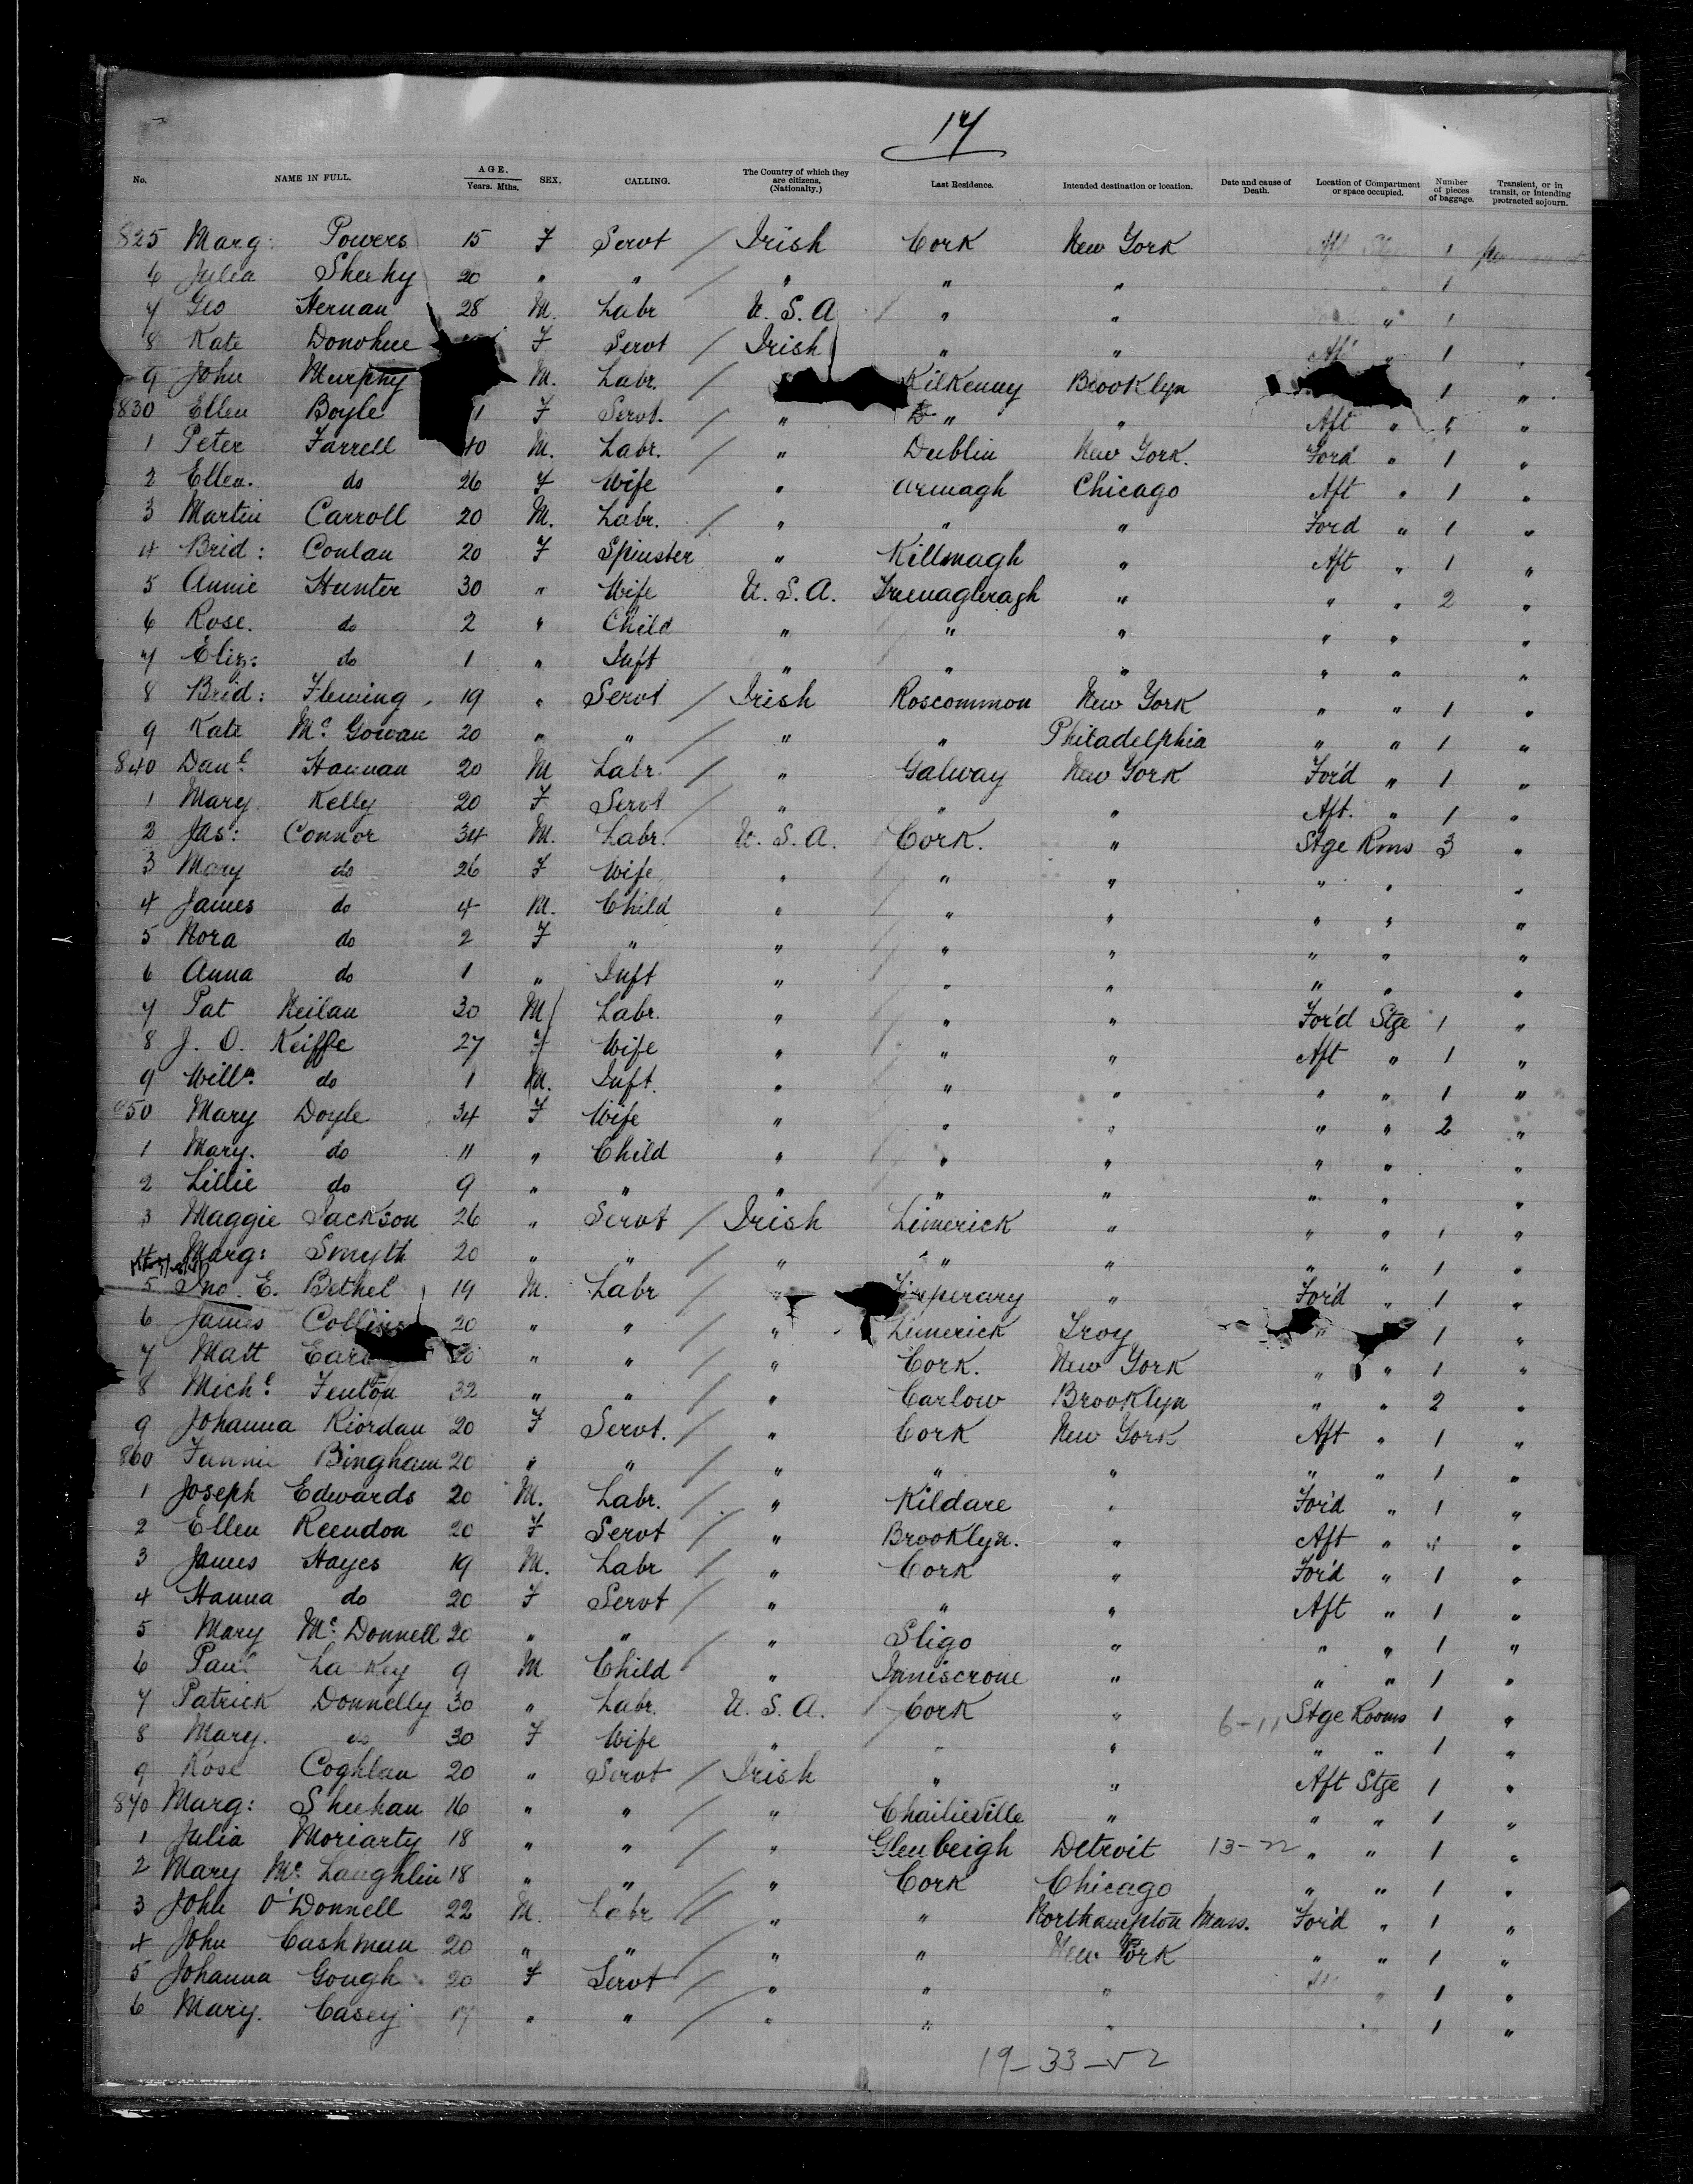 17
No. NAME IN FULL. AGE. Years. Mths. SEX. CALLING. The Country of which they are citizens. (Nationality.) Last Residence. Intended destination or location. Date and cause of Death. Location of Compartment or space occupied. Number of pieces of baggage. Transient, or in transit, or intending protracted sojourn.
825 Marg: Powers 15 F Servt / Irish Cork New York Aft Stge 1
6 Julia Sheehy 20 " " / " " " 1
7 Geo Hernan 28 M. Labr U.S.A / " " " 1
8 Kate Donohue F Servt / Irish " " Aft " 1 "
9 John Murphy M. Labr. / Kilkenny Brooklyn 1 "
830 Ellen Boyle 1 F Servt. / " " " Aft " "
1 Peter Farrell 40 M. Labr. / " Dublin New York. Ford " 1 "
2 Ellen. do 26 F Wife " Armagh Chicago Aft " 1 "
3 Martin Carroll 20 M. Labr. / " " " Ford " 1 "
4 Brid: Conlan 20 F Spinster " Killmagh " Aft " 1 "
5 Annie Hunter 30 " Wife U.S.A. " " " 2 "
6 Rose. do 2 " Child " / " " " " "
7 Eliz: do 1 " Inft " / " " " " "
8 Brid: Fleming 19 " Servt / Irish Roscommon New York " " 1 "
9 Kate Mc Gowan 20 " " / " " Philadelphia " " 1 "
840 Danl Hannan 20 M Labr. / " Galway New York For'd " 1 "
1 Mary. Kelly 20 F Servt / " " " Aft. " 1 "
2 Jas: Connor 34 M. Labr. U.S.A. / Cork. " Stge Rms 3 "
3 Mary do 26 F Wife " / " " " " "
4 James do 4 M. Child " / " " " " "
5 Nora do 2 F " " / " " " " "
6 Anna do 1 " Inft " / " " " " "
7 Pat Neilan 30 M Labr. " / " " For'd Stge 1 "
8 J. O. Keiffe 27 F Wife " / " " Aft " 1 "
9 Willm do 1 M. Inft. " / " " " " 1 "
850 Mary Doyle 34 F Wife " / " " " " 2 "
1 Mary. do 11 " Child " / " " " " "
2 Lillie do 9 " " " / " " " " "
3 Maggie Jackson 26 " Servt / Irish Limerick " " " 1 "
4 Marg: Smyth 20 " " / " " " " " 1 "
5 Jno. E. Bethel 19 M. Labr / " Tipperary " For'd " 1 "
6 James Collins 20 " " / " Limerick Troy " 1 "
7 Matt 20 " " / " Cork. New York " " 1 "
8 Michl Fenton 32 " " / " Carlow Brooklyn " " 2 "
9 Johanna Riordan 20 F Servt. / " Cork New York Aft " 1 "
860 Fannie Bingham 20 " " / " " " " " 1 "
1 Joseph Edwards 20 M. Labr. / " Kildare " For'd " 1 "
2 Ellen Reendon 20 F Servt / " Brooklyn. " Aft " "
3 James Hayes 19 M. Labr / " Cork " For'd " 1 "
4 Hanna do 20 F Servt / " " " Aft " 1 "
5 Mary Mc Donnell 20 " " / " Sligo " " " 1 "
6 Paul Lackey 9 M Child / " Inniscrone " " " 1 "
7 Patrick Donnelly 30 " Labr. U.S.A. / Cork " 6-11 Stge Rooms 1 "
8 Mary. do 30 F Wife " / " " " " 1 "
9 Rose Coghlan 20 " Servt / Irish " " Aft Stge 1 "
870 Marg: Sheehan 16 " " / " Chailieville " " " 1 "
1 Julia Moriarty 18 " " / " Glenbeigh Detroit 13-22 " " 1 "
2 Mary Mc Laughlin 18 " " / " Cork Chicago " " 1 "
3 John O'Donnell 22 M. Labr // " " Northampton Mass. For'd " 1 "
4 John Cashman 20 " " / " " New York " " 1 "
5 Johanna Gough 20 F Servt / " " " " 1 "
6 Mary. Casey 17 " " / " " " " 1 "
19-33-52